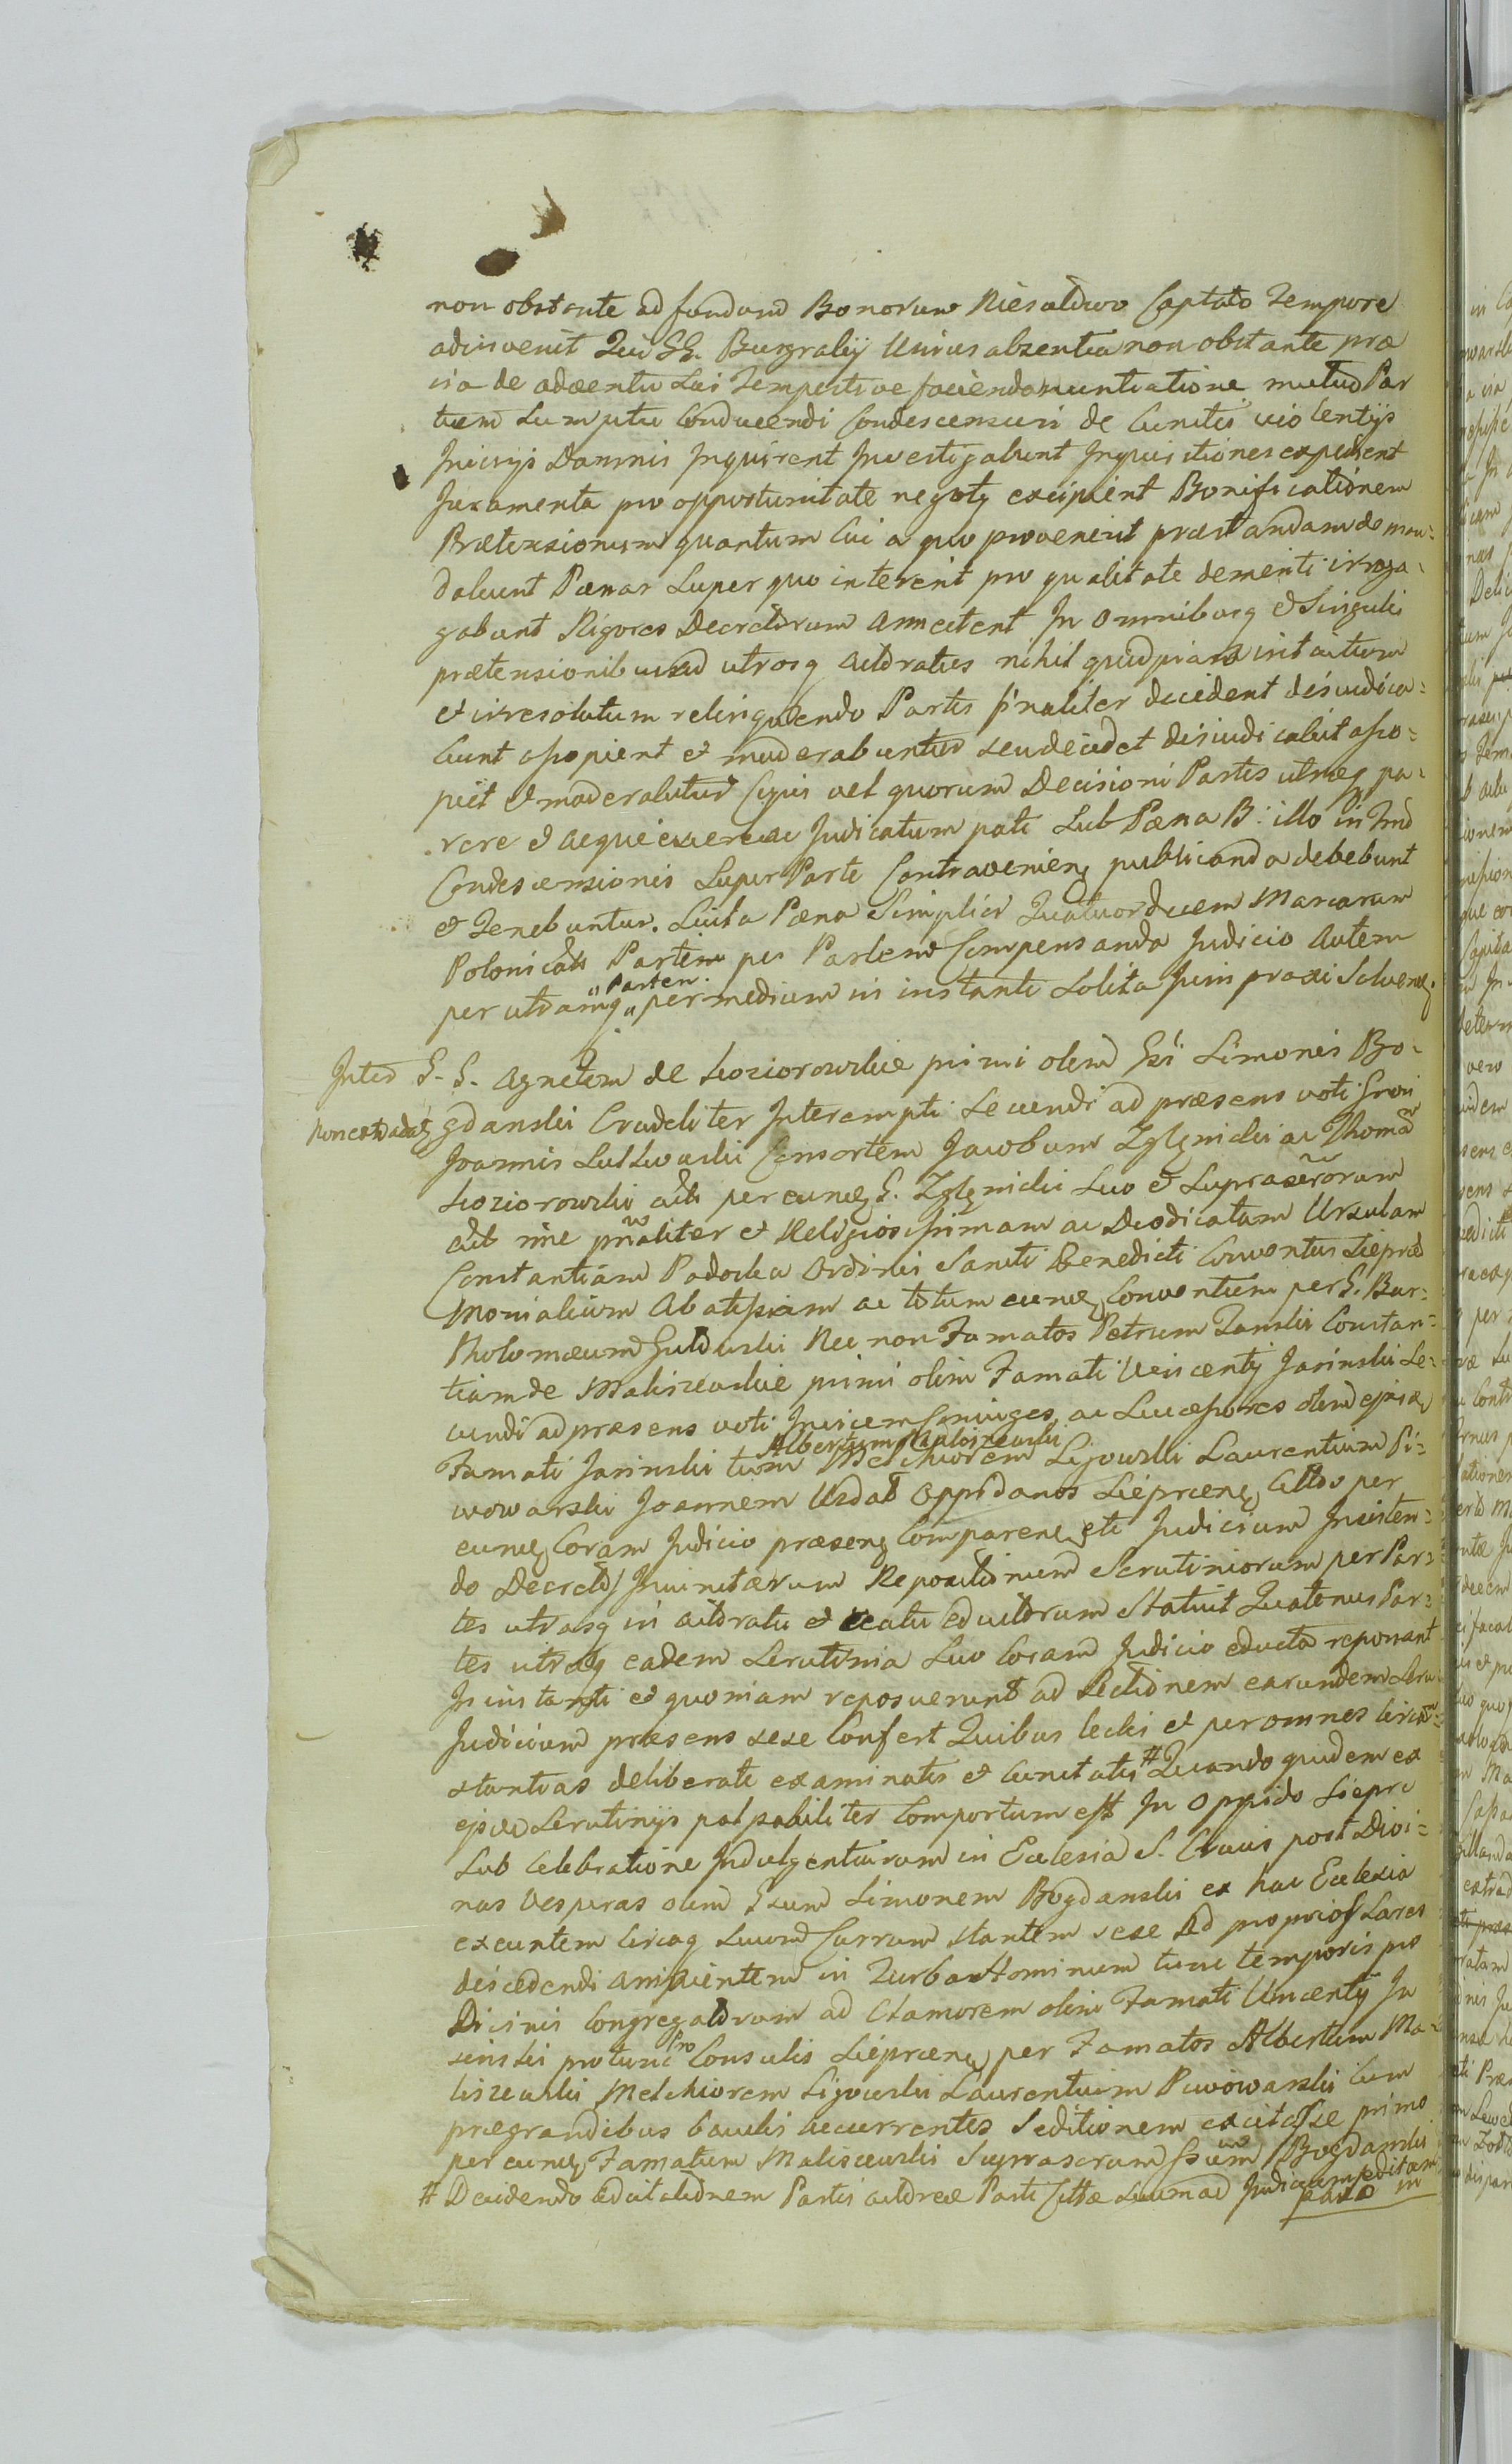 non obstante ad fundum Bonorum Niesułowo Captato Tempore
adinvenit Qui SS. Burgrabij Unius absentia non obstante præ
via de adventu Sui Tempestive facienda nuntiatione mutuo Par
tium Sumptu Conducendi Condescensuri de Cunctis violentijs
Injurijs Damnis Inquirent Investigabunt Inquisitiones expedient
Juramenta pro opportunitate negotij excipient Bonificationem
Prætensionum quantum Cui a quo provenerit præstandam deman=
dabunt Pœnas Super quo intererit pro qualitate demeriti irroga=
gabunt Rigores Decretorum Annectent In Omnibusq et Singulis
prætensionibus ad utrosq Actoratus nihil quidpiam intactum
et irresolutum relinquendo Partes finaliter decident dijudica=
bunt Sopient et moderabuntur seu decidet dijudicabit aso=
piet et moderabitur Cujus vel quorum Decisioni Partes utræq pa=
rere et acquiescere ac Judicatum pati Sub Pœna B: illo in Fnd
Condescensionis Super Parte Contravenien publicanda debebunt
et Tenebuntur. Luita Pœna Simplici Quatuordecem Marcarum
Polonicali Partem per Partem Compensanda Judicio Autem
per utramq "Partem" per medium in instanti Solita Juris praxi Solven.
Inter G. G. Agnetem de Koziorowskie primi olim Gsi Simonis Bo=
Non est adat gdanski Crudeliter Interempti Secundi ad præsens voti Grosi
Joannis Sulkowski Consortem Jacobum Zglenicki ac Thomam
Koziorowski act per eund G. Zglenicki Suo et Supraactorum
act nne prnaliter et Religiosissimam ac Deodicatam Ursulam
Constantiam Padocka Ordinis Sancti Benedicti Conventus Sieprcen
Monialium Abatissam ac totum eund Conventum per G. Bar=
tholomæum Gutowski Nec non Famatos Petrum Zanski Constan=
tiam de Maliszewskie primi olim Famati Vincentij Jasinski Se=
cundi ad præsens voti Invicem Conjuges, ac Successores olim ejusd
Famati Jasinski tum Albertum Maliszewski Melchiorem Ligowski Laurentium Pi=
wowarski Joannem Uzdał Oppidanos Sieprcen Citto per
eund Coram Judicio præsen Comparen etc Judicium Insisten=
do Decreto Juncturum Repositionum Scrutiniorum per Par=
tes utrasq in actoratu et reatu eductorum Statuit Quatenus Par=
tes utræq eadem Scrutinia Suo Coram Judicio educta reponant
In instanti et quoniam reposuerunt ad Lectionem earundem Scru
Judicium præsens sese Confert Quibus lectis et per omnes Circum=
stantias deliberate examinatis et Cunctatis # Quando quidem ex
ejsdem Scrutinijs palpabiliter Compertum est In Oppido Sieprc
Sub Celebratione Indulgentiarum in Ecclesia S. Crucis post Divi=
nas Vesperas olim Gsum Simonem Bogdanski ex hac Ecclesia
exeuntem Circaq Suum Currum Stantem sese Ad proprios Lares
discedendi ambientem in Turba Hominum tunc temporis pro
Divinis Congregatorum ad Clamorem olim Famati Vincentij Ja
sinski pro tunc Pro Consulis Sieprcen per Famatos Albertum Ma=
liszewski Melchiorem Ligowski Laurentium Piwowarski Cum
prægrandibus baculis accurrentes Seditionem excitasse primo
per eund Famatum Maliszewski Suprascrum Gsum Bogdanski
# Decidendo Adcitationem Partis actoreæ Parti Cittæ Suum ad Judicium peditam
paxo in